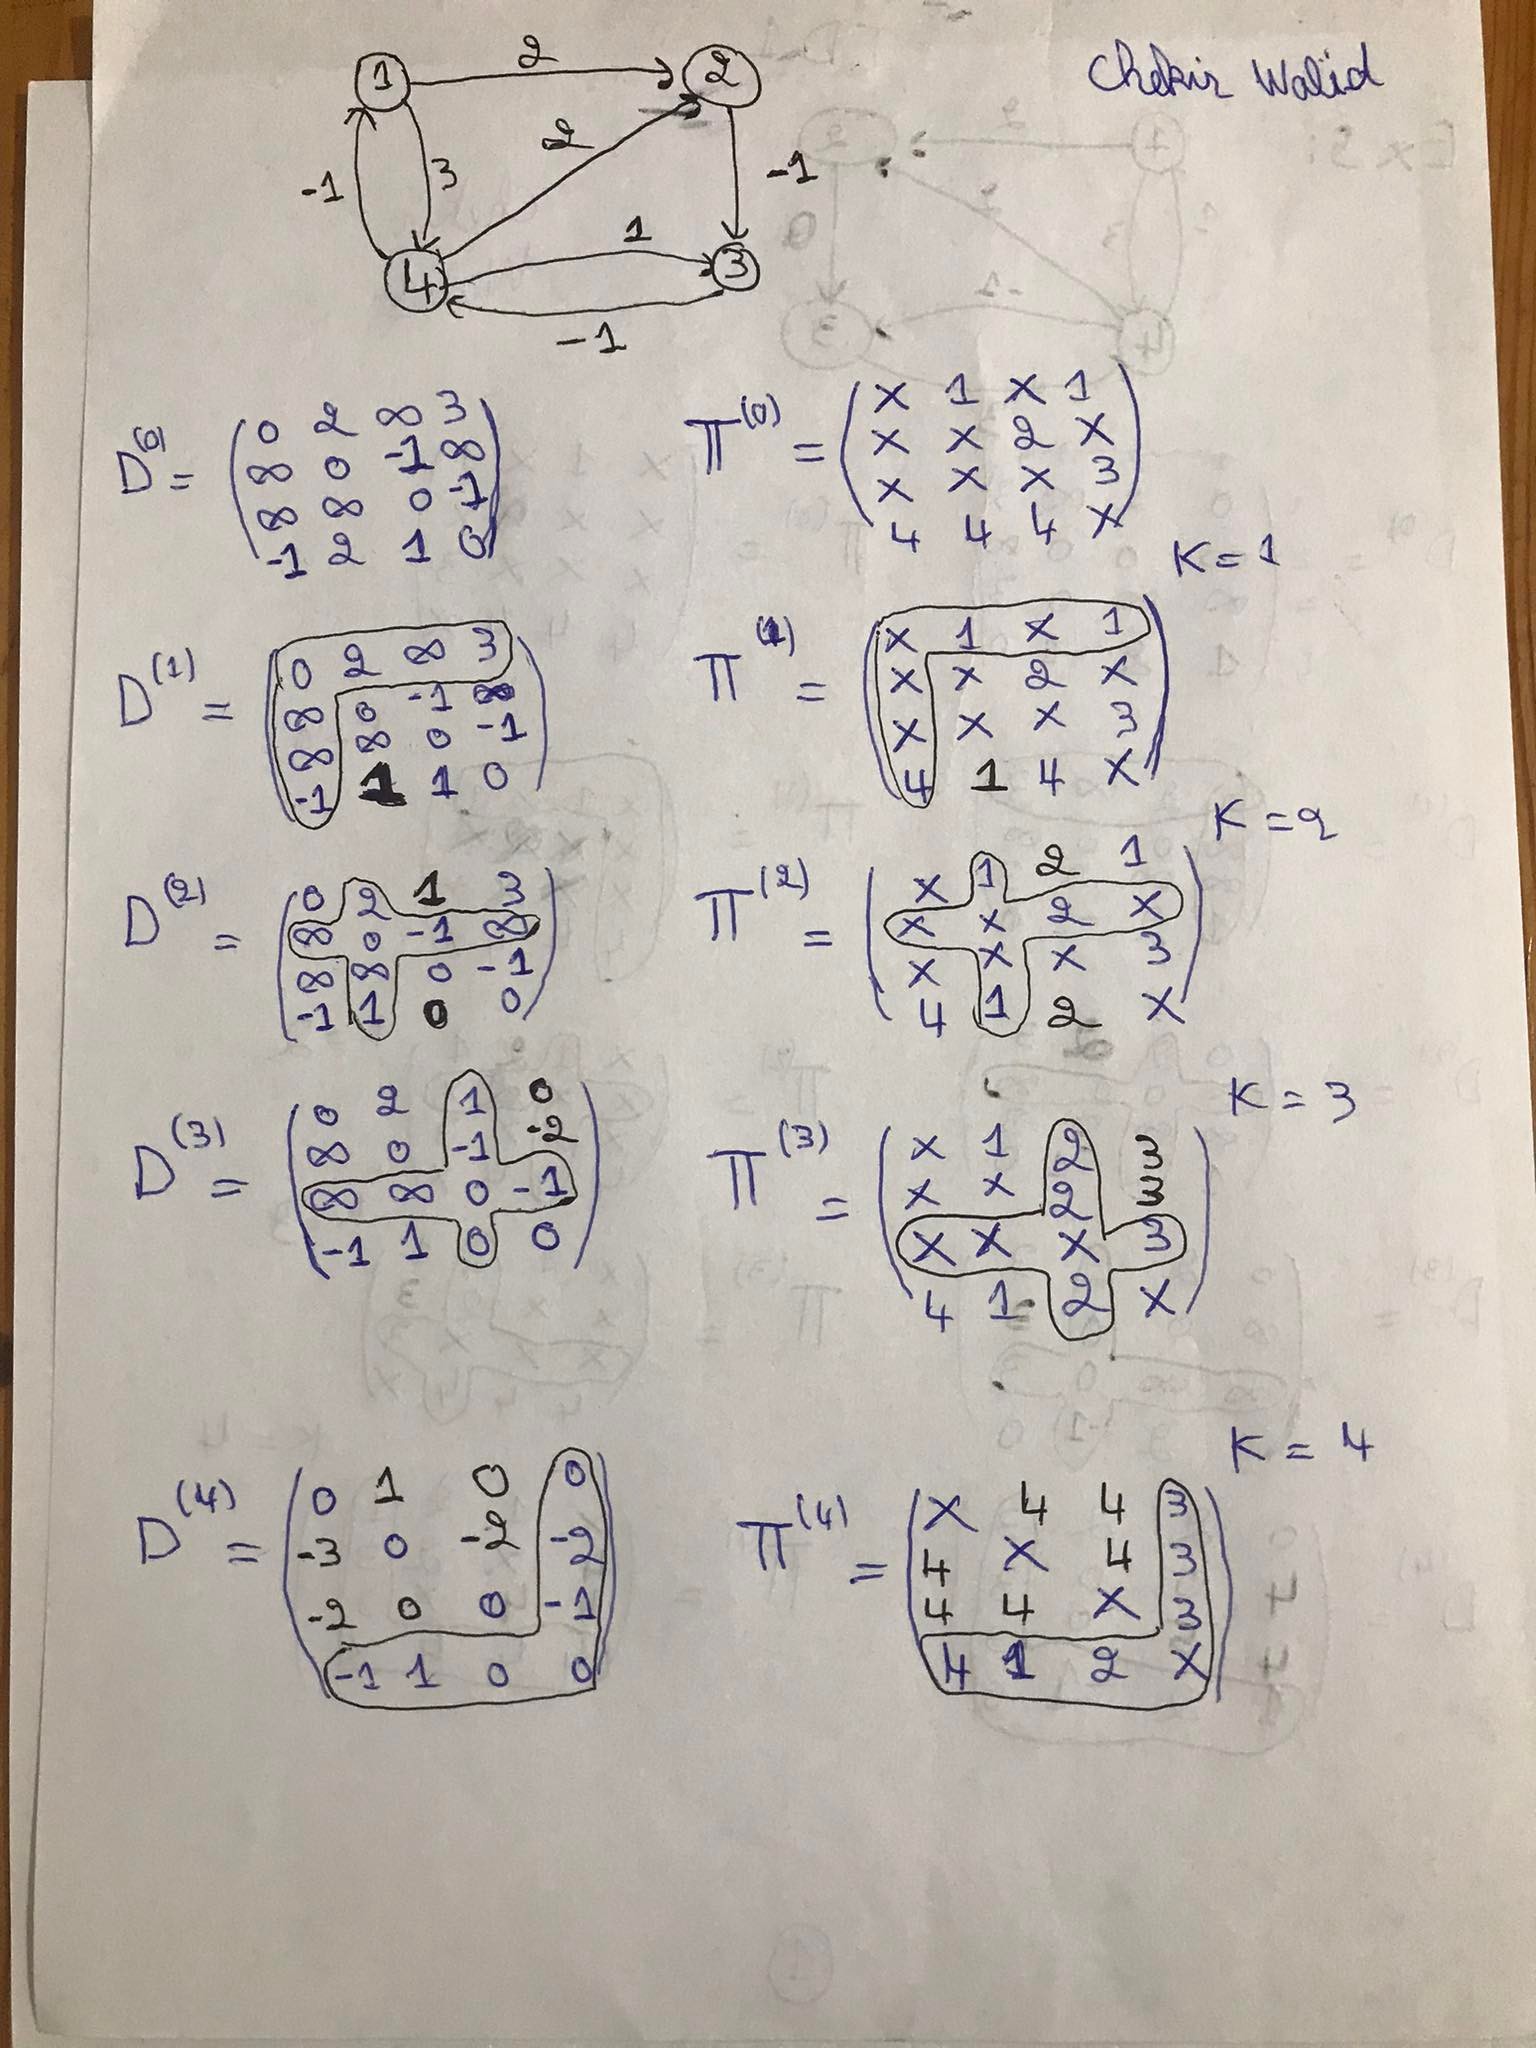 Chekir Walid
1 2 2
-1 3 2 -1
4 1 3
-1
D(0) = 0 2 ∞ 3
∞ 0 -1 ∞
∞ ∞ 0 -1
-1 2 1 0
Π(0) = x 1 x 1
x x 2 x
x x x 3
4 4 4 x
K=1
D(1) = 0 2 ∞ 3
∞ 0 -1 ∞
∞ ∞ 0 -1
-1 1 1 0
Π(1) = x 1 x 1
x x 2 x
x x x 3
4 1 4 x
K=2
D(2) = 0 2 1 3
∞ 0 -1 ∞
∞ ∞ 0 -1
-1 1 0 0
Π(2) = x 1 2 1
x x 2 x
x x x 3
4 1 2 x
K=3
D(3) = 0 2 1 0
∞ 0 -1 -2
∞ ∞ 0 -1
-1 1 0 0
Π(3) = x 1 2 3
x x 2 3
x x x 3
4 1 2 x
K=4
D(4) = 0 1 0 0
-3 0 -2 -2
-2 0 0 -1
-1 1 0 0
Π(4) = x 4 4 3
4 x 4 3
4 4 x 3
4 1 2 x